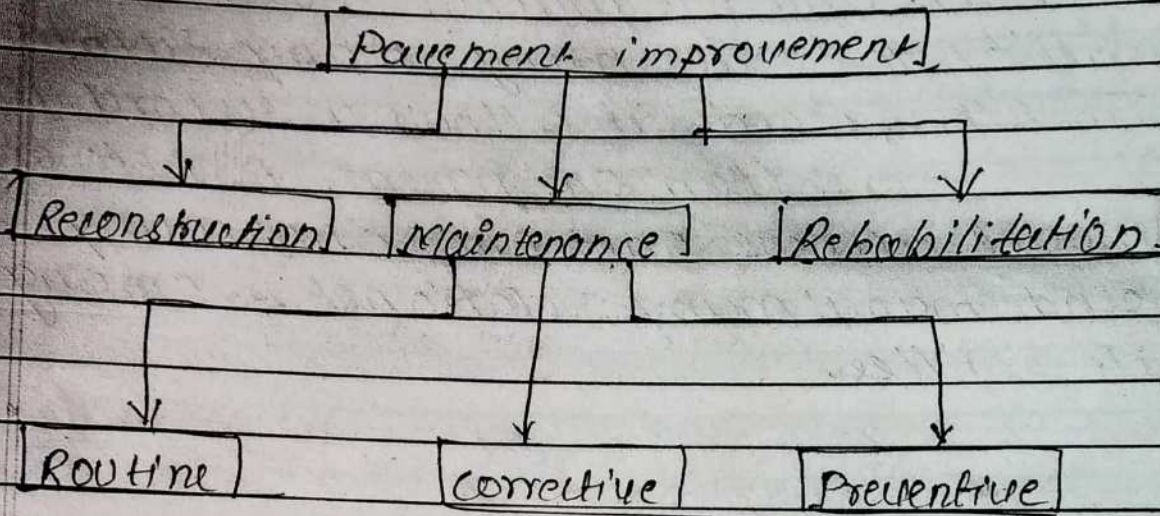 Pavement improvement
Reconstruction Maintenance Rehabilitation
Routine Corrective Preventive